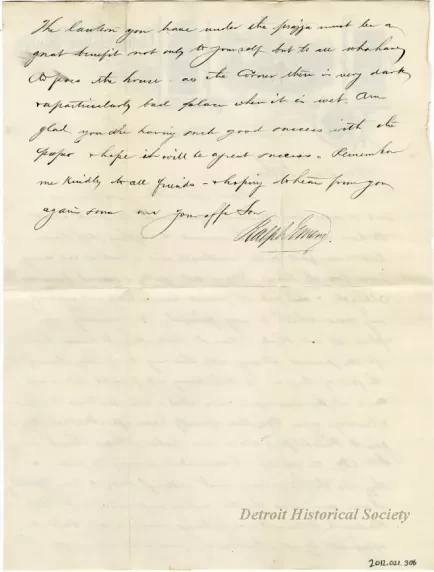 The lantern you have under the piazza must be a
great benefit not only to yourself but to all who have
to pass the house - as the corner there is very dark
& a particularly bad place when it is wet. Am
glad you are having such good success with the
paper & hope it will be a great success - Remember
me kindly to all friends - & hoping to hear from you
again soon your aff Son
Ralph Emery.
Detroit Historical Society
2012.021.306